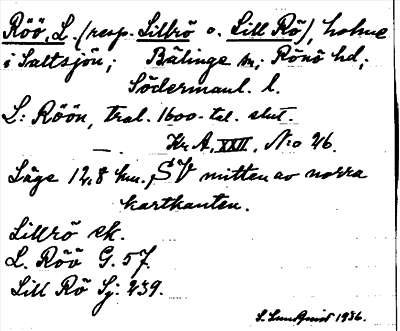 Röö, L. (resp. Lillrö o. Lill Rö), holme
i Saltsjön; Bälinge sn; Rönö hd;
Södermanl. l.
L: Röön, tral. 1600-tal. slut.
— Kr. A. XXII. N:o 26.
Läge 12,8 km., SV mitten av norra
kartkanten.
Lillrö ek.
L. Röö G. 57.
Lill Rö Sj: 239.
S. Lundqvist 1936.